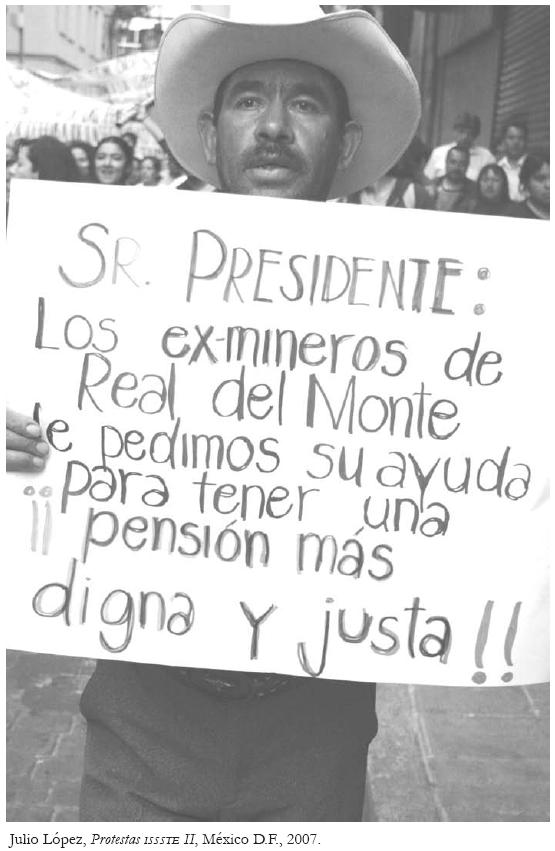 SR. PRESIDENTE:
Los ex-mineros de
Real del Monte
le pedimos su ayuda
¡¡para tener una
pensión más
digna y justa!!
Julio López, Protestas ISSSTE II, México D.F., 2007.